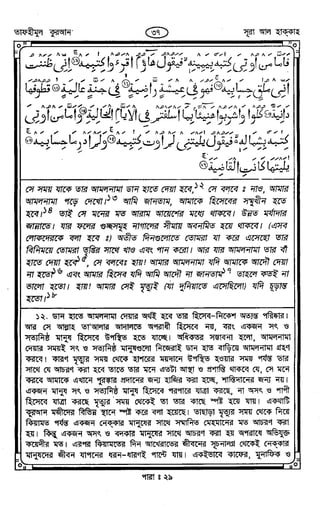 তাফহীমুল কুরআন
৩৭
সূরা আল হাক্কাহ
فَأَمَّا مَنْ أُوتِيَ كِتٰبَهٗ بِيَمِينِهٖ فَيَقُولُ هَاؤُمُ اقْرَءُوا كِتٰبِيَهْ ﴿١٩﴾ إِنِّي ظَنَنْتُ
أَنِّي مُلٰقٍ حِسَابِيَهْ ﴿٢٠﴾ فَهُوَ فِي عِيشَةٍ رَّاضِيَةٍ ﴿٢١﴾ فِي جَنَّةٍ عَالِيَةٍ ﴿٢٢﴾ قُطُوفُهَا
دَانِيَةٌ ﴿٢٣﴾ كُلُوا وَاشْرَبُوا هَنِيئًا بِمَا أَسْلَفْتُمْ فِي الْأَيَّامِ الْخَالِيَةِ ﴿٢٤﴾ وَأَمَّا مَنْ أُوتِيَ
كِتٰبَهٗ بِشِمَالِهٖ فَيَقُولُ يٰلَيْتَنِي لَمْ أُوتَ كِتٰبِيَهْ ﴿٢٥﴾ وَلَمْ أَدْرِ مَا حِسَابِيَهْ ﴿٢٦﴾
يٰلَيْتَهَا كَانَتِ الْقَاضِيَةَ ﴿٢٧﴾
সে সময় যাকে তার আমলনামা ডান হাতে দেয়া হবে,১২ সে বলবে ঃ নাও, আমার
আমলনামা পড়ে দেখো।১৩ আমি জানতাম, আমাকে হিসেবের সম্মুখীন হতে
হবে।১৪ তাই সে মনের মত আরাম আয়েশের মধ্যে থাকবে। উন্নত মর্যাদার
জান্নাতে। যার ফলের গুচ্ছসমূহ নাগালের সীমায় অবনমিত হয়ে থাকবে। (এসব
লোকদেরকে বলা হবে ঃ) অতীত দিনগুলোতে তোমরা যা করে এসেছো তার
বিনিময়ে তোমরা তৃপ্তির সাথে খাও এবং পান করো। আর যার আমলনামা তার বাঁ
হাতে দেয়া হবে১৫ সে বলবে ঃ হায়! আমার আমলনামা যদি আমাকে আদৌ দেয়া
না হতো১৬ এবং আমার হিসেব যদি আমি আদৌ না জানতাম১৭ তাহলে কতই না
ভালো হতো। হায়! আমার সেই মৃত্যুই (যা দুনিয়াতে এসেছিলো) যদি চূড়ান্ত
হতো।১৮
১২. ডান হাতে আমলনামা দেয়ার অর্থই হবে তার হিসেব-নিকেশ অত্যন্ত পরিষ্কার।
আর সে আল্লাহ তা'আলার আদালতে অপরাধী হিসেবে নয়, বরং একজন সৎ ও
সত্যনিষ্ঠ মানুষ হিসেবে উপস্থিত হতে যাচ্ছে। অধিকতর সম্ভাবনা হলো, আমলনামা
দেয়ার সময়ই সৎ ও সত্যনিষ্ঠ মানুষগুলো নিজেরাই ডান হাত বাড়িয়ে আমলনামা গ্রহণ
করবে। কারণ মৃত্যুর সময় থেকে হাশরের ময়দানে উপস্থিত হওয়ার সময় পর্যন্ত তার
সাথে যে আচরণ করা হবে তাতে তার মনে এতটা আস্থা ও প্রশান্তি থাকবে যে, সে মনে
করবে আমাকে এখানে পুরষ্কার প্রদানের জন্য হাজির করা হচ্ছে, শাস্তিদানের জন্য নয়।
একজন মানুষ সৎ ও সত্যনিষ্ঠ মানুষ হিসেবে পরপারে যাত্রা করছে, না অসৎ ও পাপী
হিসেবে যাত্রা করছে মৃত্যুর সময় থেকেই তা তার কাছে স্পষ্ট হয়ে যায়। একথাটি
কুরআন মজীদের বিভিন্ন স্থানে স্পষ্ট করে বলা হয়েছে। তাছাড়া মৃত্যুর সময় থেকে নিয়ে
কিয়ামত পর্যন্ত একজন নেককার মানুষের সাথে সম্মানিত মেহমানের মত আচরণ করা
হয়। কিন্তু একজন অসৎ ও বদকার মানুষের সাথে আচরণ করা হয় অপরাধে অভিযুক্ত
কয়েদীর মত। এরপর কিয়ামতের দিন আখেরাতের জীবনের সূচনালগ্ন থেকেই নেককার
মানুষদের জীবন যাপনের ধরন-ধারণই পাল্টে যায়। একইভাবে কাফের, মুনাফিক ও
পারা ঃ ২৯